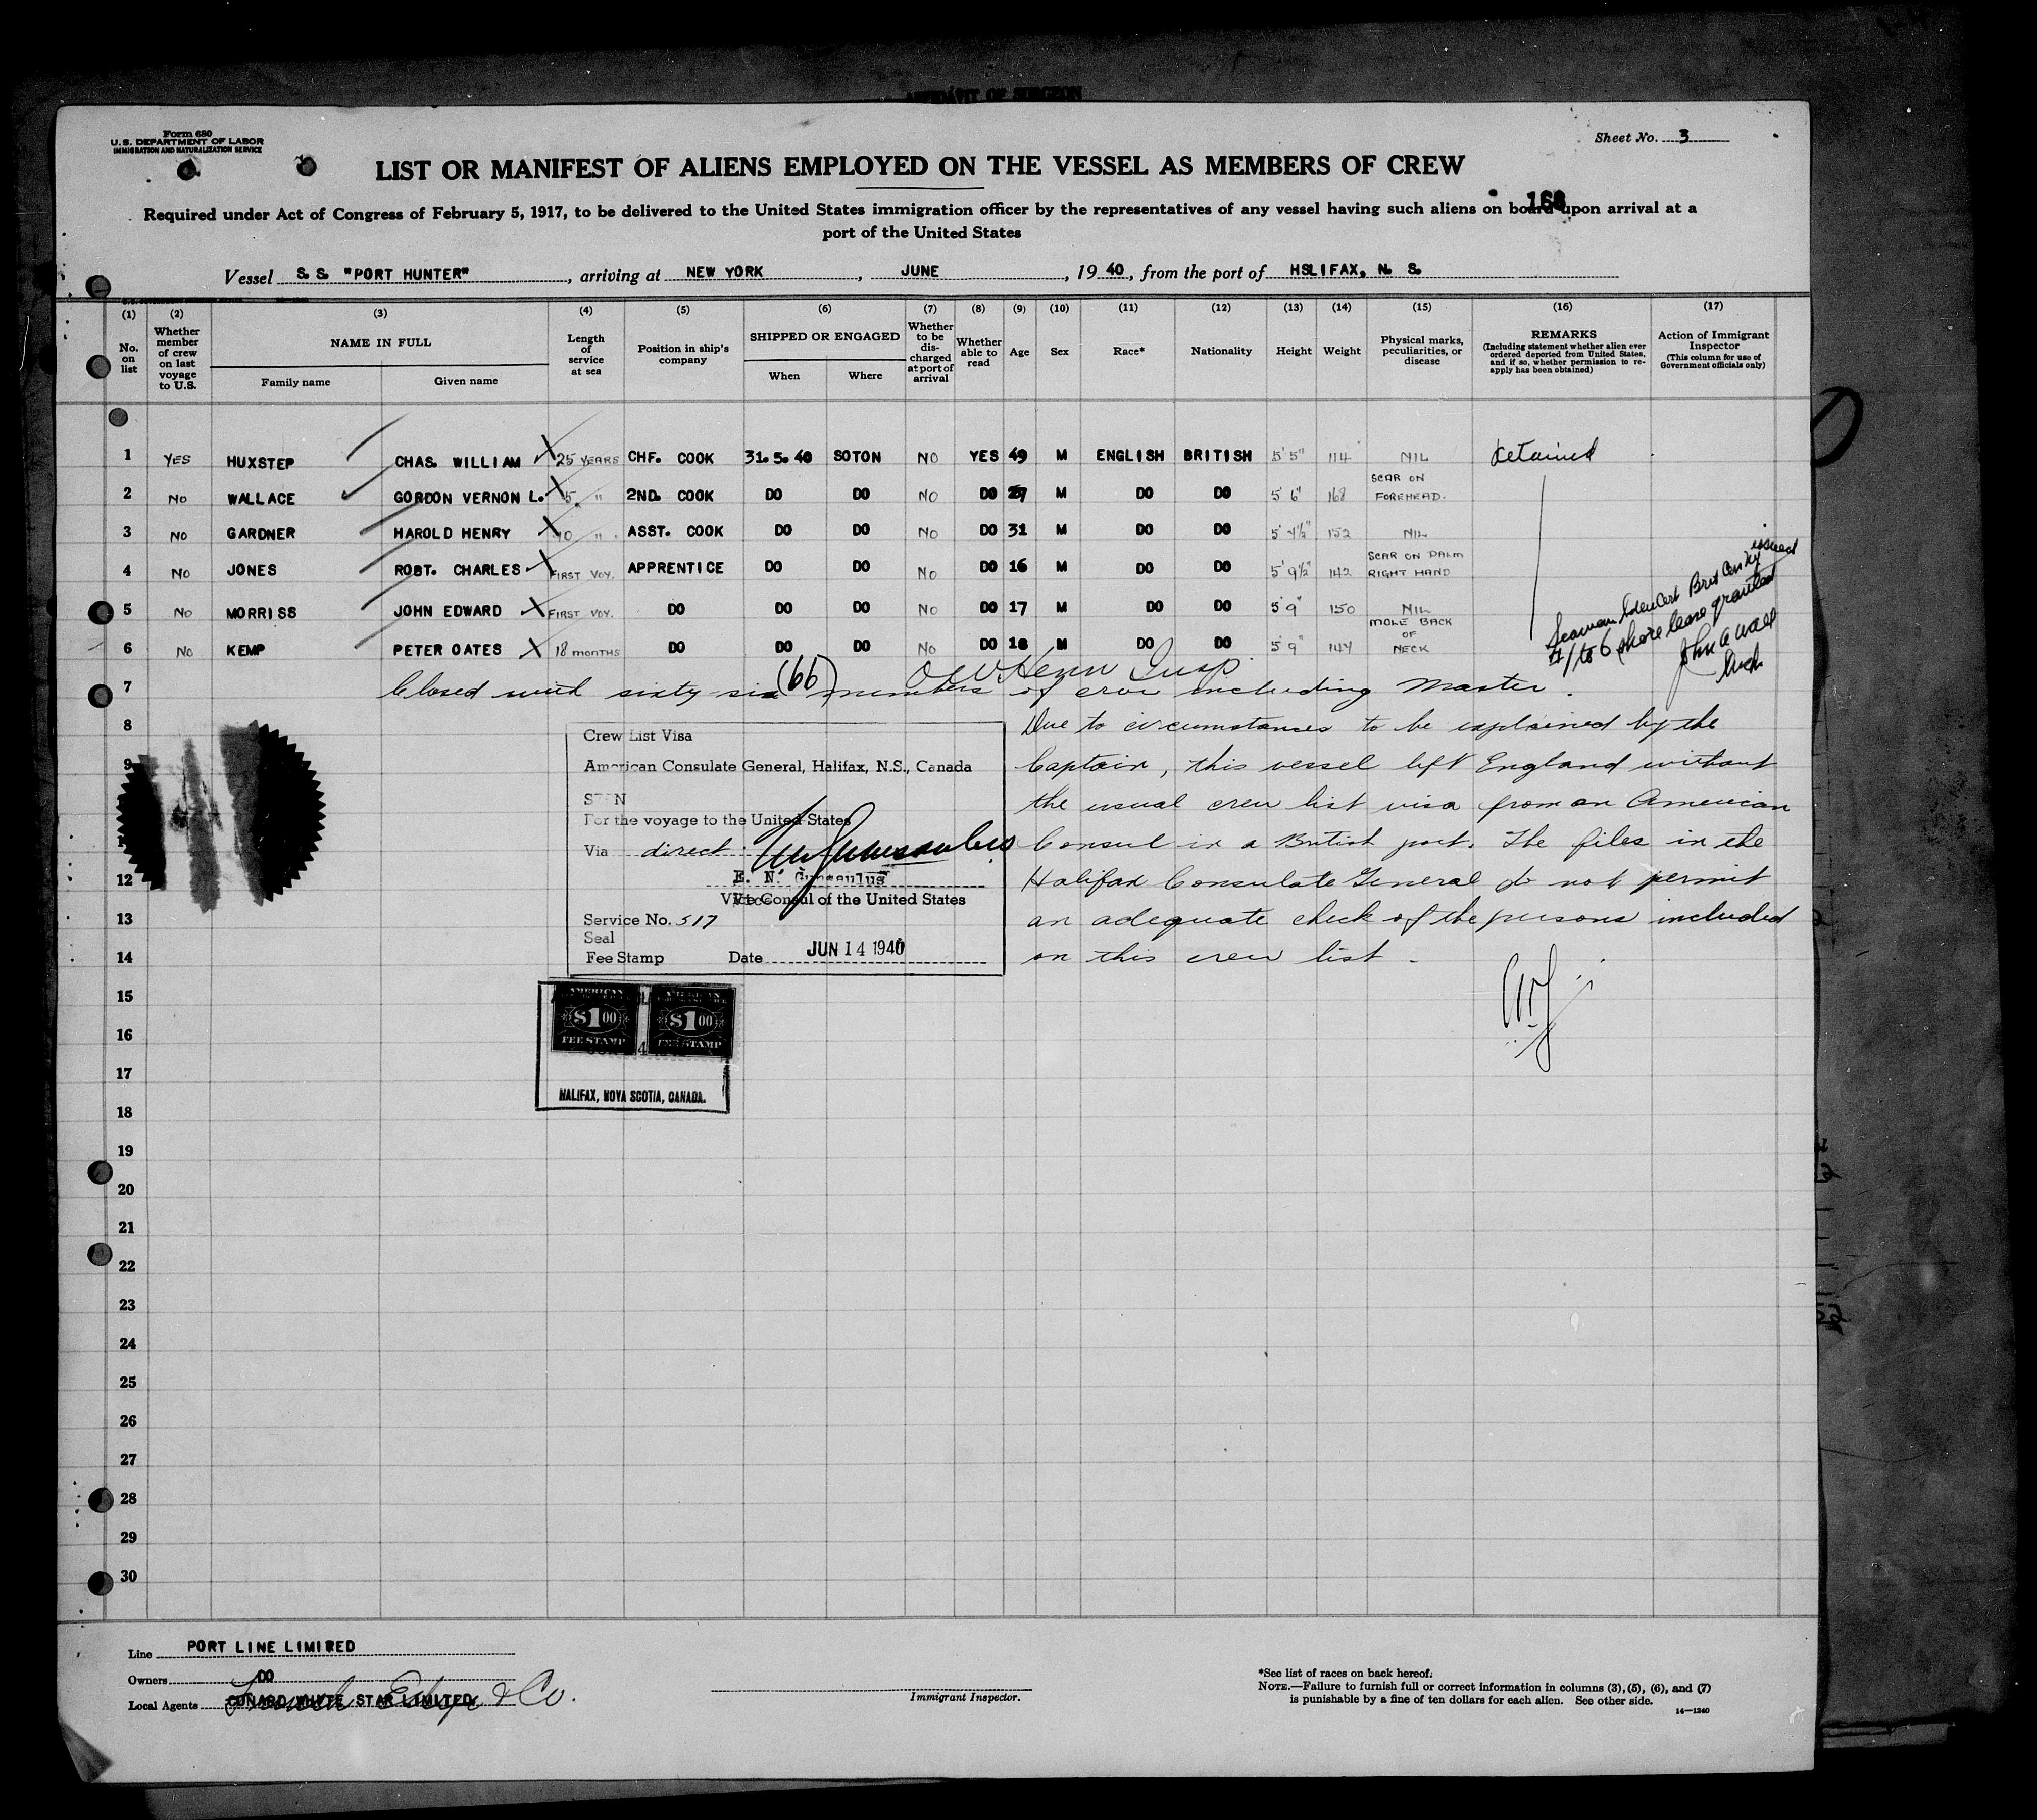 AFFIDAVIT OF SURGEON
Form 680
U. S. DEPARTMENT OF LABOR
IMMIGRATION AND NATURALIZATION SERVICE
Sheet No. 3
LIST OR MANIFEST OF ALIENS EMPLOYED ON THE VESSEL AS MEMBERS OF CREW
168
Required under Act of Congress of February 5, 1917, to be delivered to the United States immigration officer by the representatives of any vessel having such aliens on board upon arrival at a
port of the United States
Vessel S. S. "PORT HUNTER", arriving at NEW YORK, JUNE, 1940, from the port of HSLIFAX, N. S.
(1) (2) (3) (4) (5) (6) (7) (8) (9) (10) (11) (12) (13) (14) (15) (16) (17)
No. on list
Whether member of crew on last voyage to U.S.
NAME IN FULL
Family name Given name
Length of service at sea
Position in ship's company
SHIPPED OR ENGAGED
When Where
Whether to be discharged at port of arrival
Whether able to read
Age
Sex
Race*
Nationality
Height
Weight
Physical marks, peculiarities, or disease
REMARKS
(Including statement whether alien ever ordered deported from United States, and if so, whether permission to re-apply has been obtained)
Action of Immigrant Inspector
(This column for use of Government officials only)
1 YES HUXSTEP CHAS. WILLIAM 25 YEARS CHF. COOK 31.5.40 SOTON NO YES 49 M ENGLISH BRITISH 5'5" 114 NIL detained
2 NO WALLACE GORDON VERNON L. 5 " 2ND. COOK DO DO NO DO 27 M DO DO 5' 6" 168 SCAR ON FOREHEAD.
3 NO GARDNER HAROLD HENRY 10 " ASST. COOK DO DO NO DO 31 M DO DO 5' 4½" 152 NIL
4 NO JONES ROBT. CHARLES FIRST VOY. APPRENTICE DO DO NO DO 16 M DO DO 5' 9½" 142 SCAR ON PALM RIGHT HAND
5 NO MORRISS JOHN EDWARD FIRST VOY. DO DO DO NO DO 17 M DO DO 5'9" 150 NIL
6 NO KEMP PETER OATES 18 MONTHS DO DO DO NO DO 18 M DO DO 5'9" 144 MOLE BACK OF NECK
Seaman Iden Cert Brit issued
#1 to 6 shore leave granted
John A Wall
Insp
7 Closed with sixty six (66) members of crew including Master.
8 Due to circumstances to be explained by the
9 Captain, this vessel left England without
the usual crew list visa from an American
Consul in a British port. The files in the
12 Halifax Consulate General do not permit
13 an adequate check of the persons included
14 on this crew list.
Crew List Visa
American Consulate General, Halifax, N.S., Canada
SEEN
For the voyage to the United States
Via direct
E. N. Gunsaulus
Vice Consul of the United States
Service No. 517
Seal
Fee Stamp Date JUN 14 1940
AMERICAN
$1 00
FEE STAMP
AMERICAN
$1 00
FEE STAMP
HALIFAX, NOVA SCOTIA, CANADA.
15
16
17
18
19
20
21
22
23
24
25
26
27
28
29
30
Line PORT LINE LIMIRED
Owners DO
Local Agents CUNARD WHYTE STAR LIMITED & Co.
Immigrant Inspector.
*See list of races on back hereof.
NOTE.—Failure to furnish full or correct information in columns (3), (5), (6), and (7)
is punishable by a fine of ten dollars for each alien. See other side.
14—1240